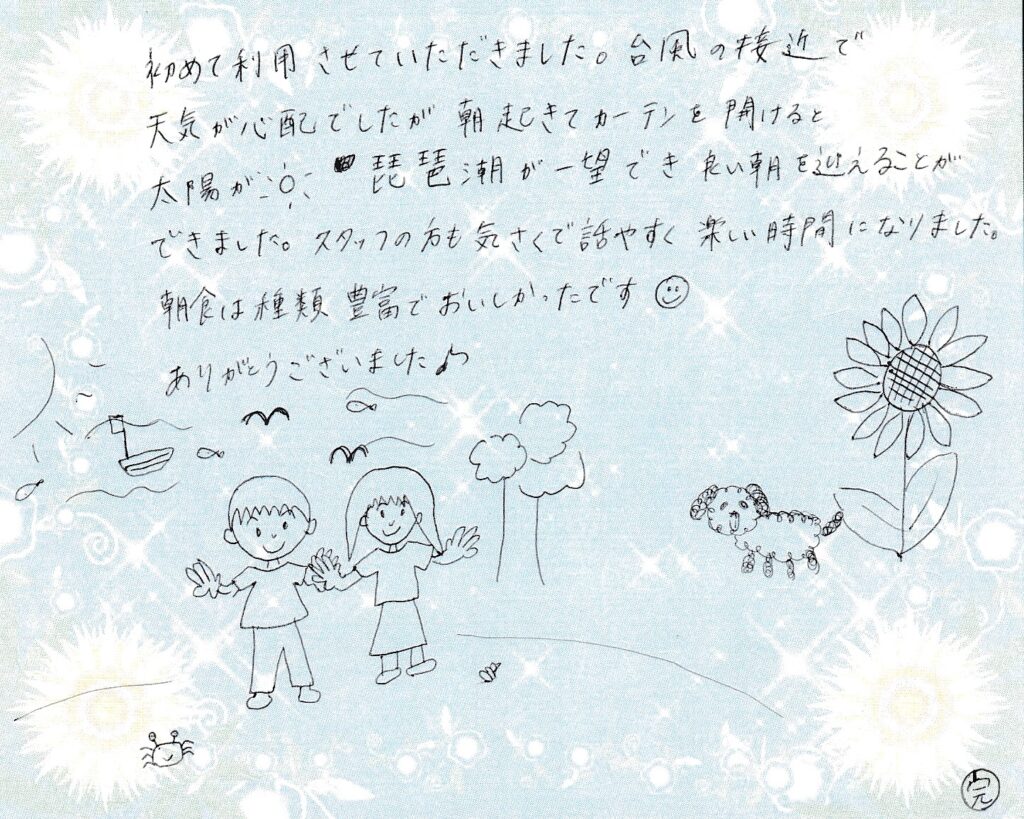 初めて利用させていただきました。台風の接近で
天気が心配でしたが朝起きてカーテンを開けると
太陽が 琵琶潮が一望でき良い朝を迎えることが
できました。スタッフの方も気さくで話やすく楽しい時間になりました。
朝食は種類豊富でおいしかったです
ありがとうございました♪
完